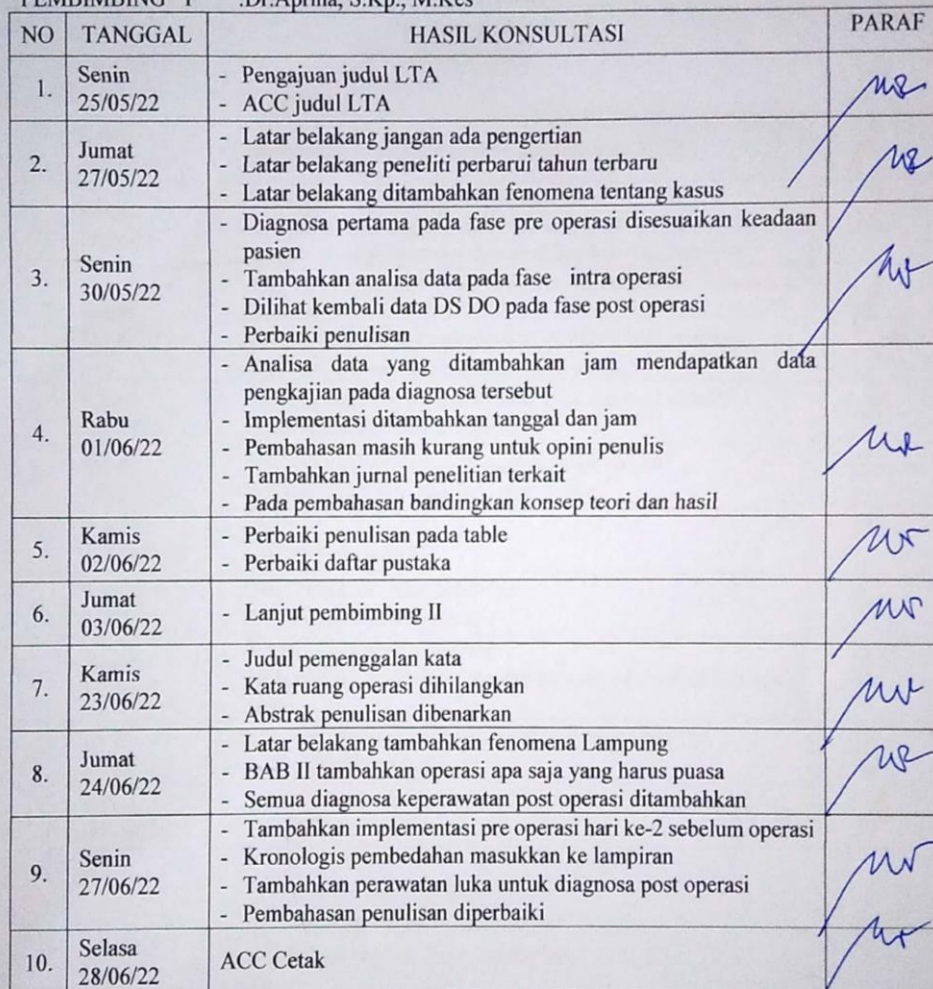 PEMBIMBING I :Dr.Aprina, S.Kp., M.Kes
NO TANGGAL HASIL KONSULTASI PARAF
1. Senin 25/05/22
- Pengajuan judul LTA
- ACC judul LTA
2. Jumat 27/05/22
- Latar belakang jangan ada pengertian
- Latar belakang peneliti perbarui tahun terbaru
- Latar belakang ditambahkan fenomena tentang kasus
3. Senin 30/05/22
- Diagnosa pertama pada fase pre operasi disesuaikan keadaan
pasien
- Tambahkan analisa data pada fase intra operasi
- Dilihat kembali data DS DO pada fase post operasi
- Perbaiki penulisan
4. Rabu 01/06/22
- Analisa data yang ditambahkan jam mendapatkan data
pengkajian pada diagnosa tersebut
- Implementasi ditambahkan tanggal dan jam
- Pembahasan masih kurang untuk opini penulis
- Tambahkan jurnal penelitian terkait
- Pada pembahasan bandingkan konsep teori dan hasil
5. Kamis 02/06/22
- Perbaiki penulisan pada table
- Perbaiki daftar pustaka
6. Jumat 03/06/22
- Lanjut pembimbing II
7. Kamis 23/06/22
- Judul pemenggalan kata
- Kata ruang operasi dihilangkan
- Abstrak penulisan dibenarkan
8. Jumat 24/06/22
- Latar belakang tambahkan fenomena Lampung
- BAB II tambahkan operasi apa saja yang harus puasa
- Semua diagnosa keperawatan post operasi ditambahkan
9. Senin 27/06/22
- Tambahkan implementasi pre operasi hari ke-2 sebelum operasi
- Kronologis pembedahan masukkan ke lampiran
- Tambahkan perawatan luka untuk diagnosa post operasi
- Pembahasan penulisan diperbaiki
10. Selasa 28/06/22
ACC Cetak